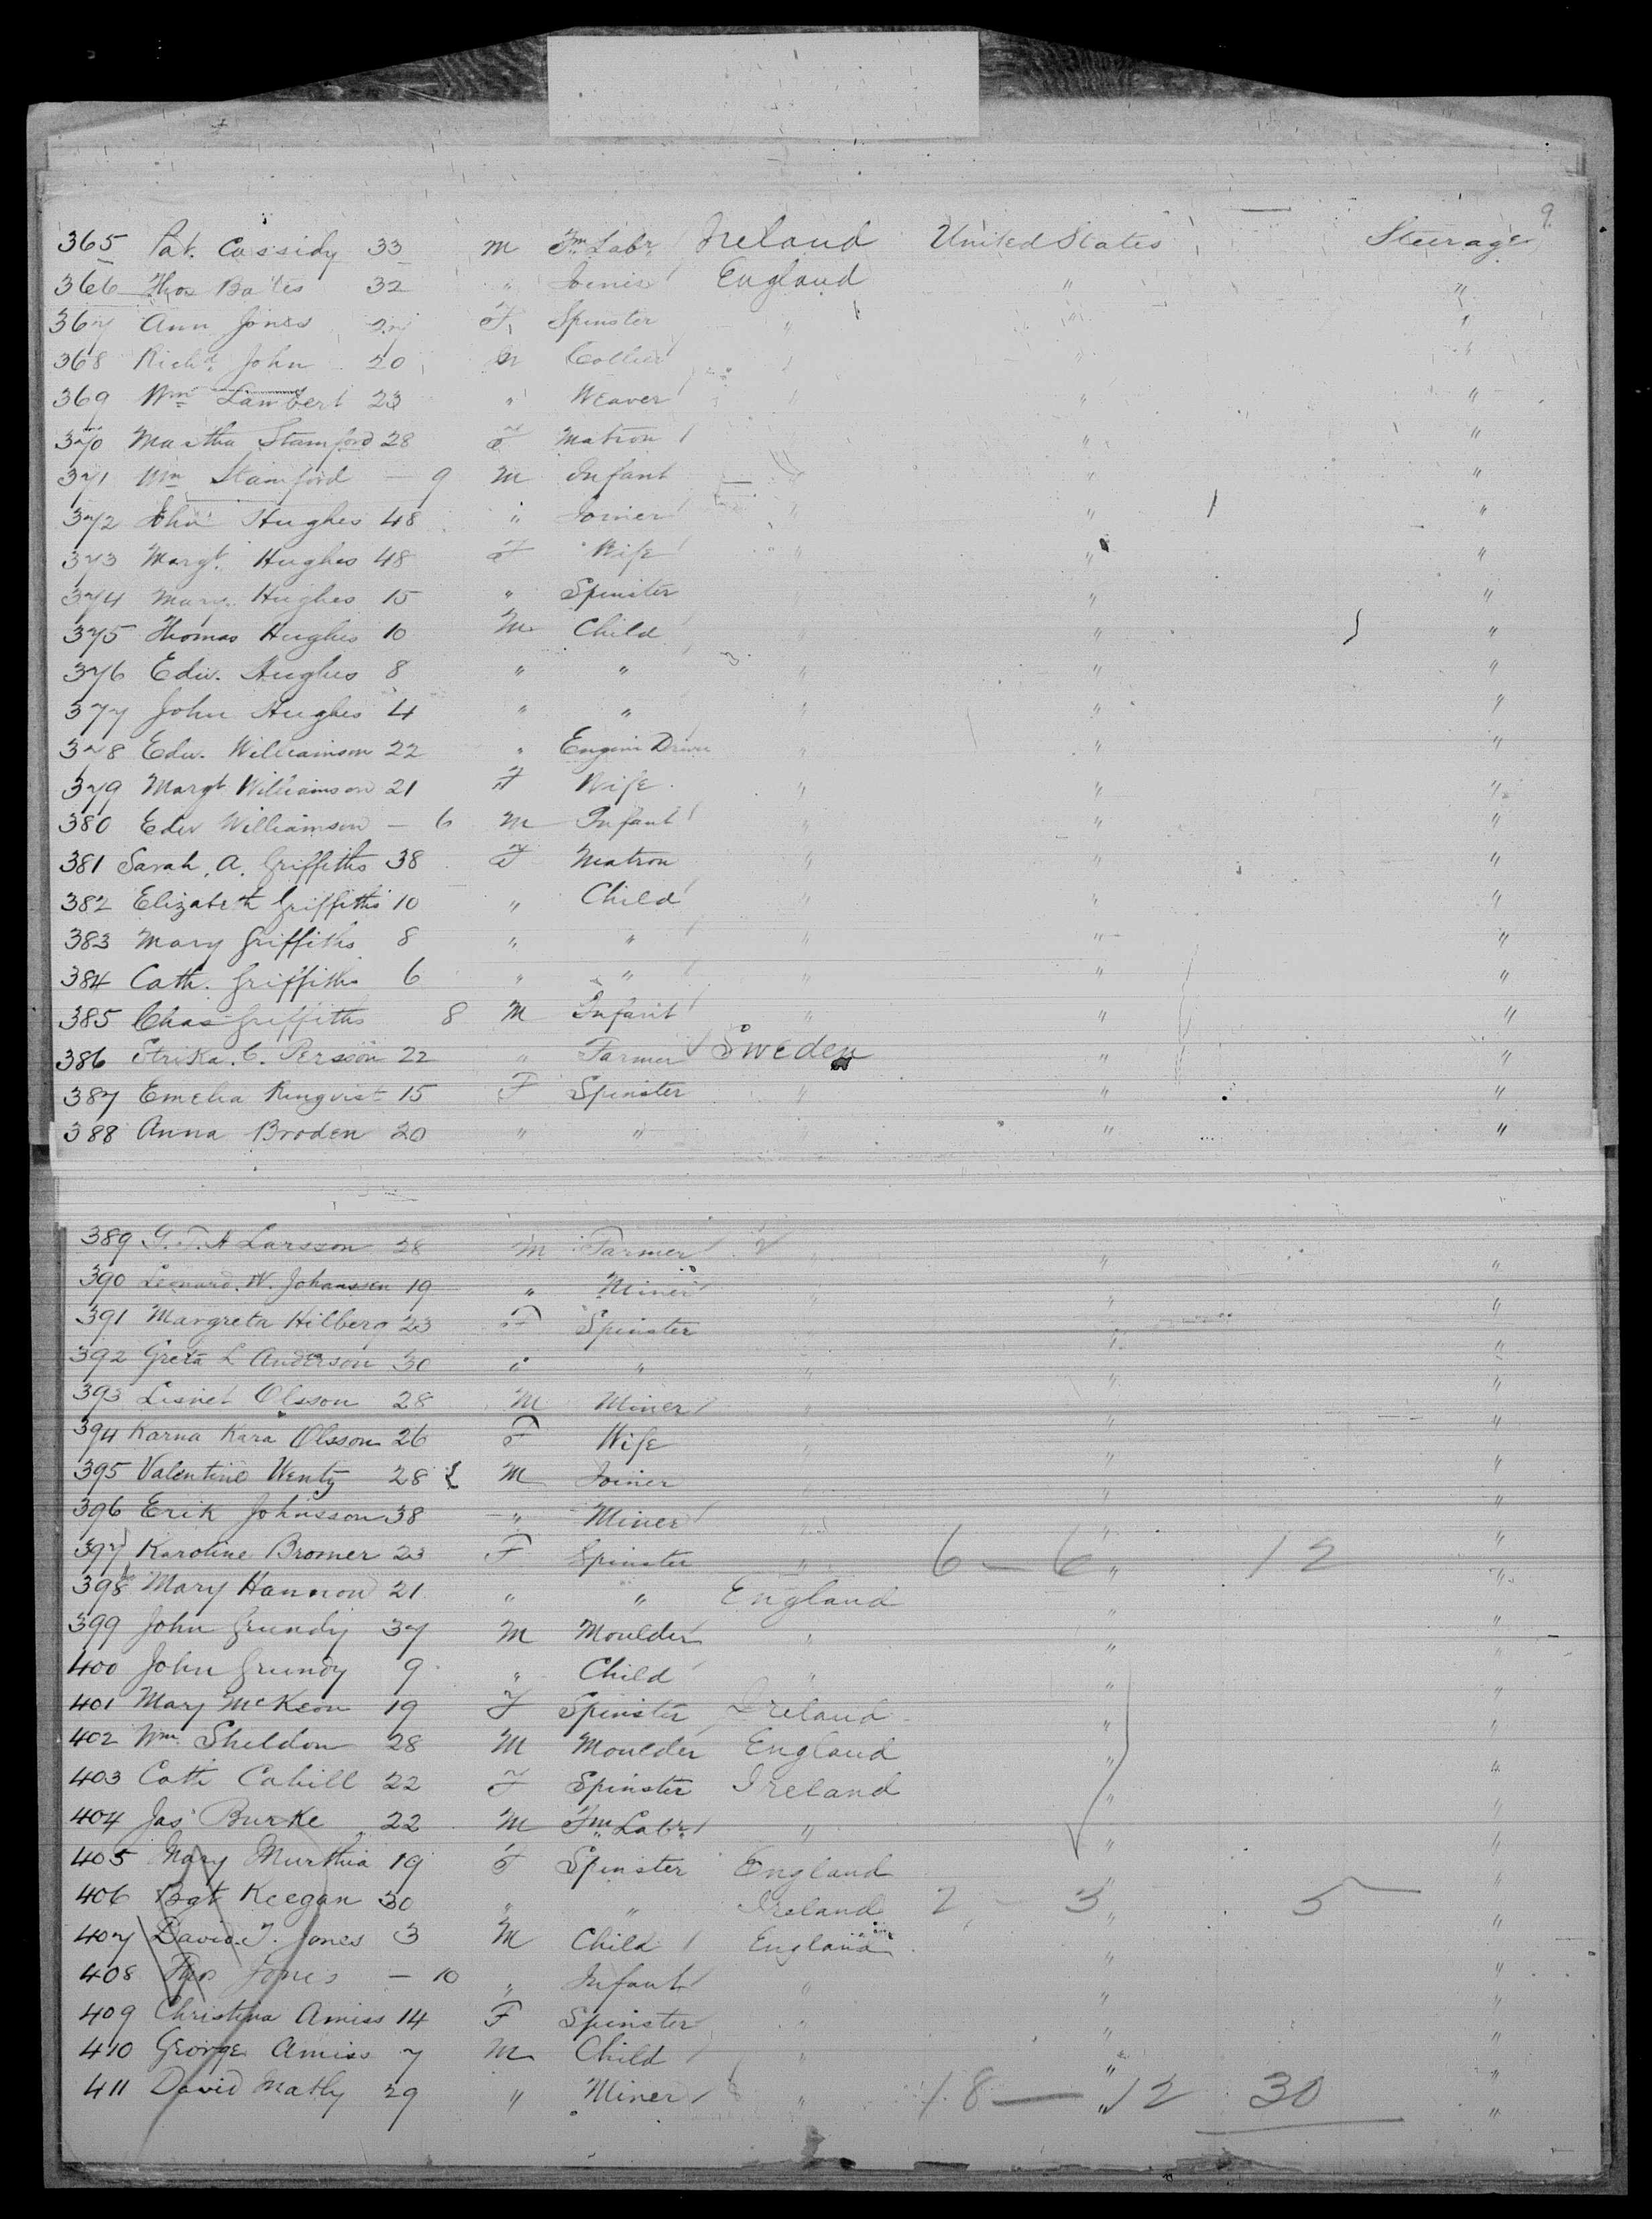 9.
365 Pat. Cassidy 33 M Fm Labr. Ireland United States Steerage
366 Thos Bates 32 " Joiner England " "
367 Ann Jones 27 F Spinster " " "
368 Richd. John 20 M Collier " " "
369 Wm Lambert 23 " Weaver " " "
370 Martha Stamford 28 F Matron " "
371 Wm Stamford — 9 M Infant " " "
372 John Hughes 48 " Joiner " " "
373 Margt. Hughes 48 F Wife " " "
374 Mary Hughes 15 " Spinster " "
375 Thomas Hughes 10 M Child " " "
376 Edw. Hughes 8 " " " " "
377 John Hughes 4 " " " " "
378 Edw. Williamson 22 " Engine Driver " " "
379 Margt Williamson 21 F Wife " " "
380 Edw Williamson — 6 M Infant " " "
381 Sarah. A. Griffiths 38 F Matron " " "
382 Elizabeth Griffiths 10 " Child " " "
383 Mary Griffiths 8 " " " " "
384 Cath. Griffiths 6 " " " " "
385 Chas Griffiths 8 M Infant " " "
386 C. Persson 22 " Farmer Sweden " "
387 Emelia Ringvist 15 F Spinster " " "
388 Anna Broden 20 " " " "
389 G. T. A Larsson 28 M Farmer " "
390 Leonard. W. Johanssen 19 " Miner " " "
391 Margreta Hilberg 23 F Spinster " "
392 Greta L Anderson 30 " " " "
393 Olsson 28 M Miner " " "
394 Karna Kara Olsson 26 F Wife " " "
395 Valentine Wentz 28 M Joiner " " "
396 Erik Johnsson 38 " Miner " " "
397 Karoline Bromer 23 F Spinster " 6 — 6 " 12 "
398 Mary Hannon 21 " " England " "
399 John Grundy 37 M Moulder " " "
400 John Grundy 9 " Child " " "
401 Mary McKeon 19 F Spinster Ireland " "
402 Wm. Sheldon 28 M Moulder England " "
403 Cath Cahill 22 F Spinster Ireland " "
404 Jas Burke 22 M Fm Labr. " " "
405 Mary Murthia 19 F Spinster England " "
406 Bgt Keegan 30 " " Ireland 2 — 3 " 5 "
407 David. T. Jones 3 M Child England " "
408 Thos Jones — 10 " Infant " " "
409 Christina Amiss 14 F Spinster " " "
410 George Amiss 7 M Child " " "
411 David Mathy 29 " Miner " 18 — 12 " 30 "